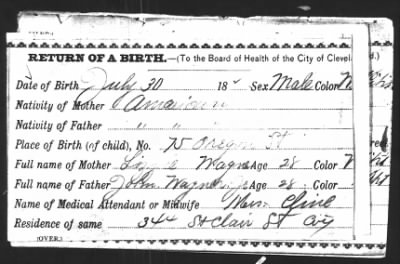 RETURN OF A BIRTH.—(To the Board of Health of the City of Clevel
Date of Birth July 30 18 Sex Male Color
Nativity of Mother American
Nativity of Father " "
Place of Birth (of child), No. 75 Oregon St
Full name of Mother Wagner Age 28 Color
Full name of Father John Wagner Age 28 Color
Name of Medical Attendant or Midwife Cline
Residence of same 344 St Clair St City
(OVER.)